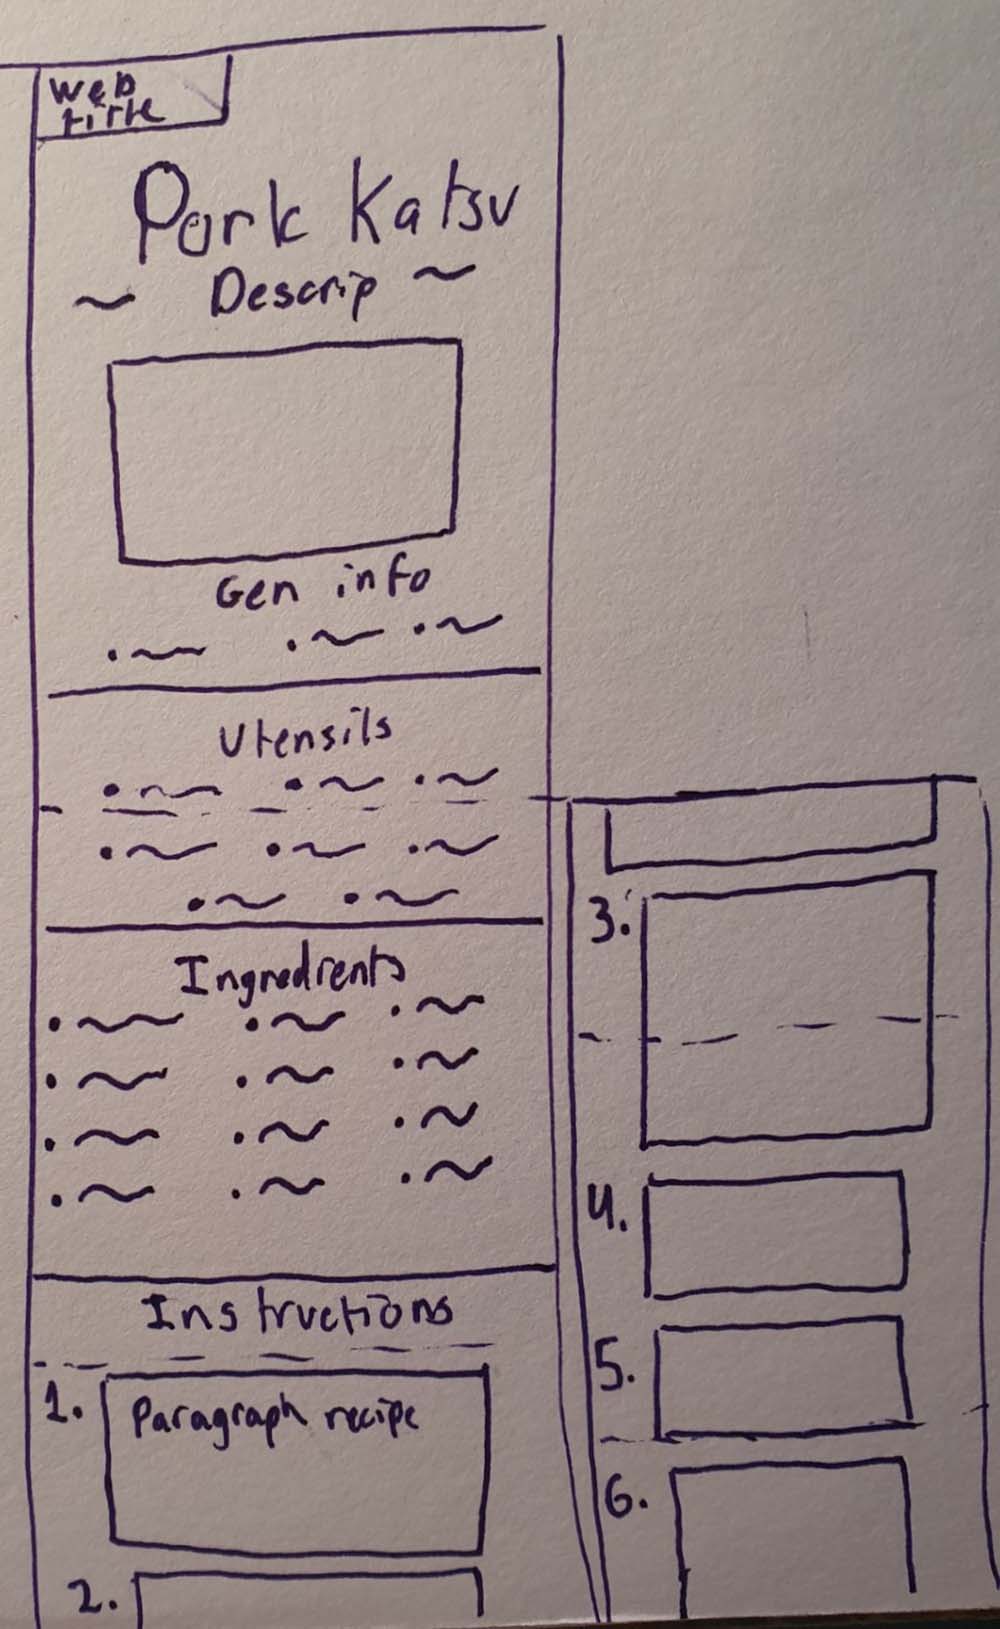 Web
title
Pork Katsu
Descrip
Gen info
Utensils
Ingredients
Instructions
1.
Paragraph recipe
2.
3.
4.
5.
6.